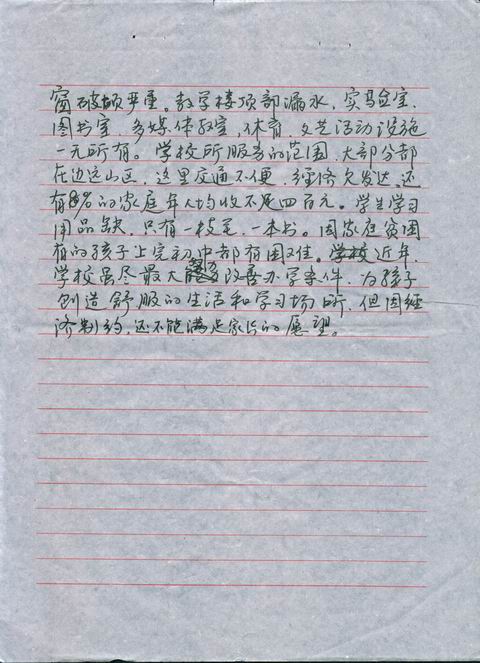 窗破损严重。教学楼顶部漏水，实验室、
图书室，多媒体教室，体育、文艺活动设施
一无所有。学校所服务的范围，大部分都
在边远山区，这里交通不便，经济欠发达，还
有8%的家庭年人均收不足四百元。学生学习
用品缺，只有一枝笔，一本书。因家庭贫困
有的孩子上完初中都有困难。学校近年，
学校虽尽最大努力改善办学条件，为孩子
创造舒服的生活和学习场所，但因经
济制约，还不能满足家长的愿望。